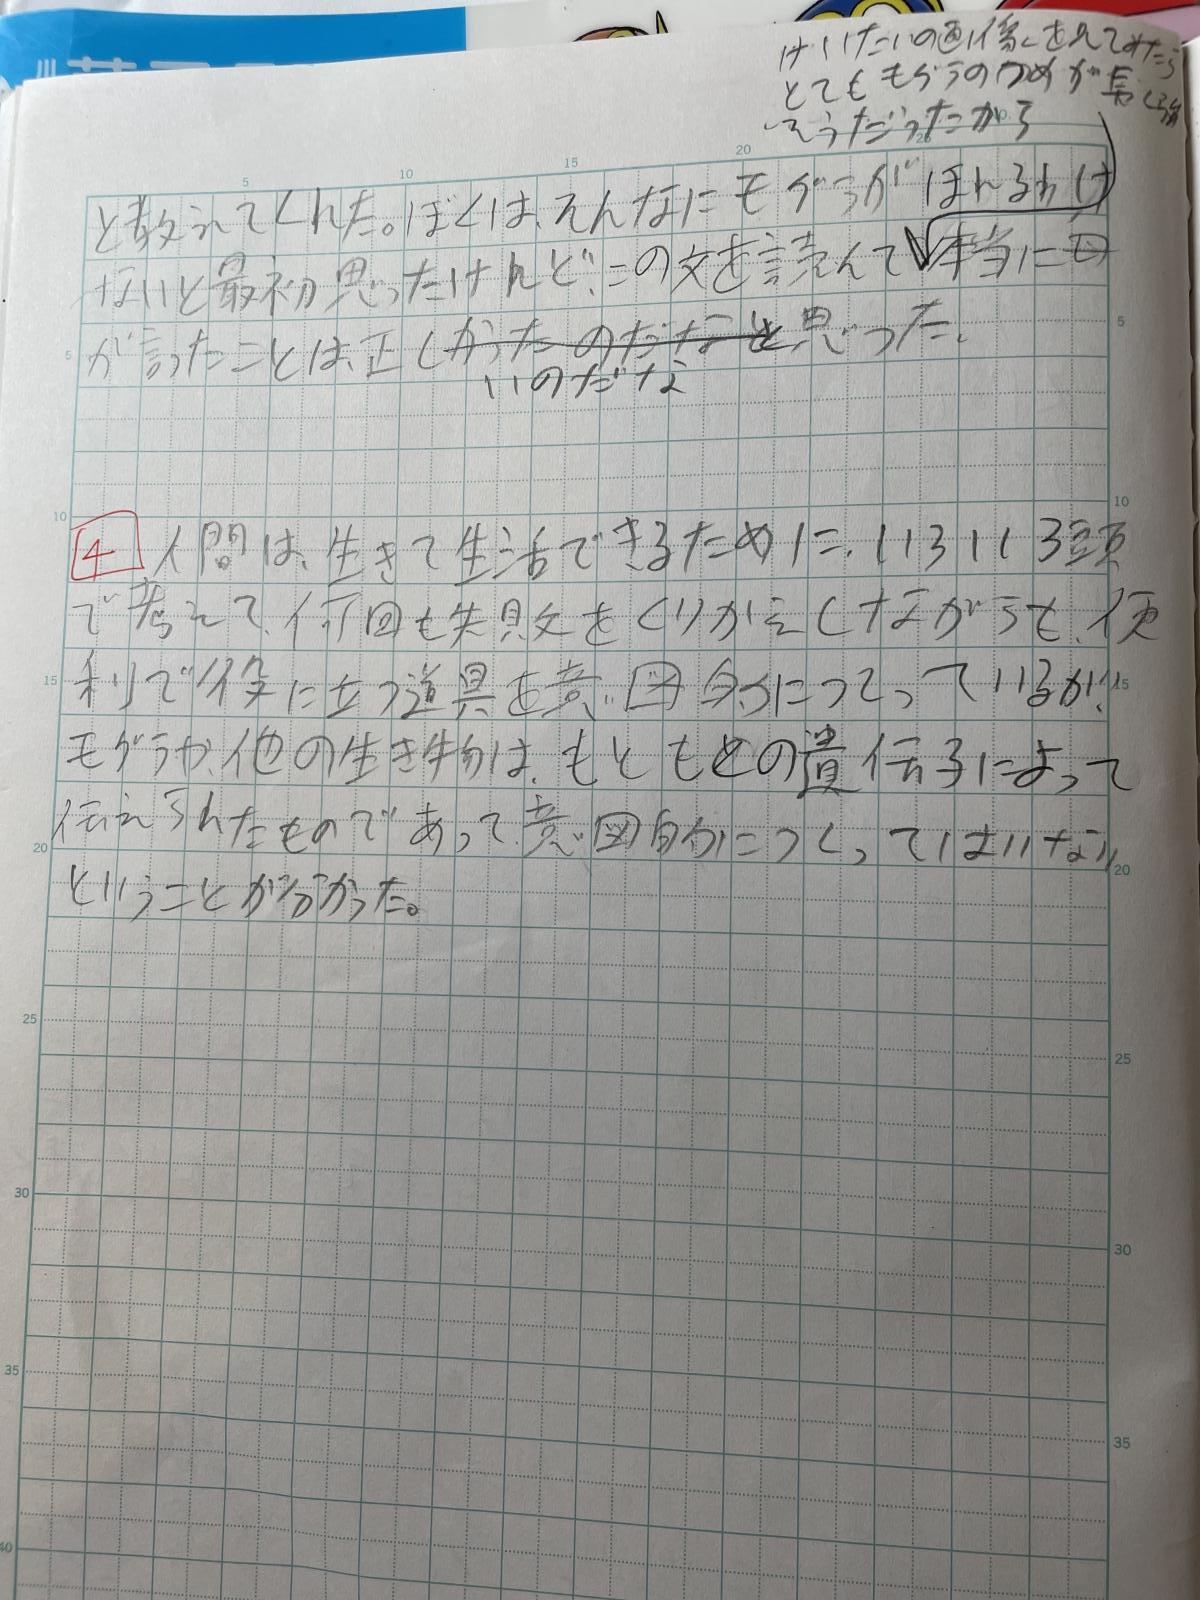 けいたいの画像を見てみたら
とてもモグラのつめが長く強
そうだったから
5
10
15
20
と教えてくれた。ぼくは、そんなにモグラがほれるわけ
ないと最初思ったけれど、この文を読んで本当に母
が言ったことは、正しかったのだなと思った。
いのだな
5
5
10
10
4 人間は、生きて生活できるために、いろいろ頭
で考えて、何回も失敗をくりかえしながらも、便
利で役に立つ道具を意図的につくっているが、
15
15
モグラや、他の生き物は、もともとの遺伝子によって
伝えられたものであって、意図的につくってはいない
20
20
ということが分かった。
25
25
30
30
35
35
40